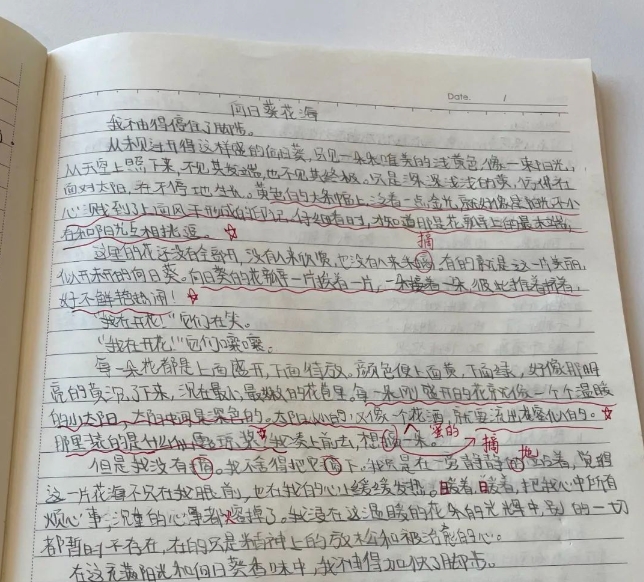 Date. /
向日葵花海
我不由得停住了脚步。
从未见过开得这样盛的向日葵,只见一朵朵唯美的浅黄色,像一束阳光,
从天空上照下来,不见其发端,也不见其终极。只是深深浅浅的黄,仿佛在
面对太阳,在不停地生长。黄色的大条幅上泛着一点点光,就好像是阳光不小
心溅到了上面风干形成的印记,仔细看时,才知道那是花瓣上的最末端,
在和阳光互相挑逗。
摘
这里的花还没有全部开,没有人来欣赏,也没有人来采。有的就是这一片美丽,
似开未开的向日葵。向日葵的花瓣一片挨着一片,一朵接着一朵,彼此推着挤着,
好不解热闹!
“我在开花!”它们在笑。
“我在开花!”它们嚷嚷。
每一朵花都是上面盛开,下面待放。颜色便上面黄,下面绿,好像那明
亮的黄沉了下来,沉在最小最嫩的花苞里。每一朵刚盛开的花就像一个个温暖
的小太阳,太阳中间是深色的。太阳火似的,又像一个花洒,就要流出花蜜似的。
那里装的是什么仙露琼浆?我凑上前去,想一朵。
蜜的
摘
但是我没有。我不舍得把它下。我只是在一旁静静的看着,觉得
这一片花海不只在我眼前,也在我的心上缓缓发热。暖着,暖着,把我心中所有
烦心事,沉重的心事都熔掉了。我浸在这温暖的花朵的光辉中,别的一切
都暂时不存在,有的只是精神上的放松和被治愈的心。
在这充满阳光和向日葵香味中,我不由得加快了脚步。